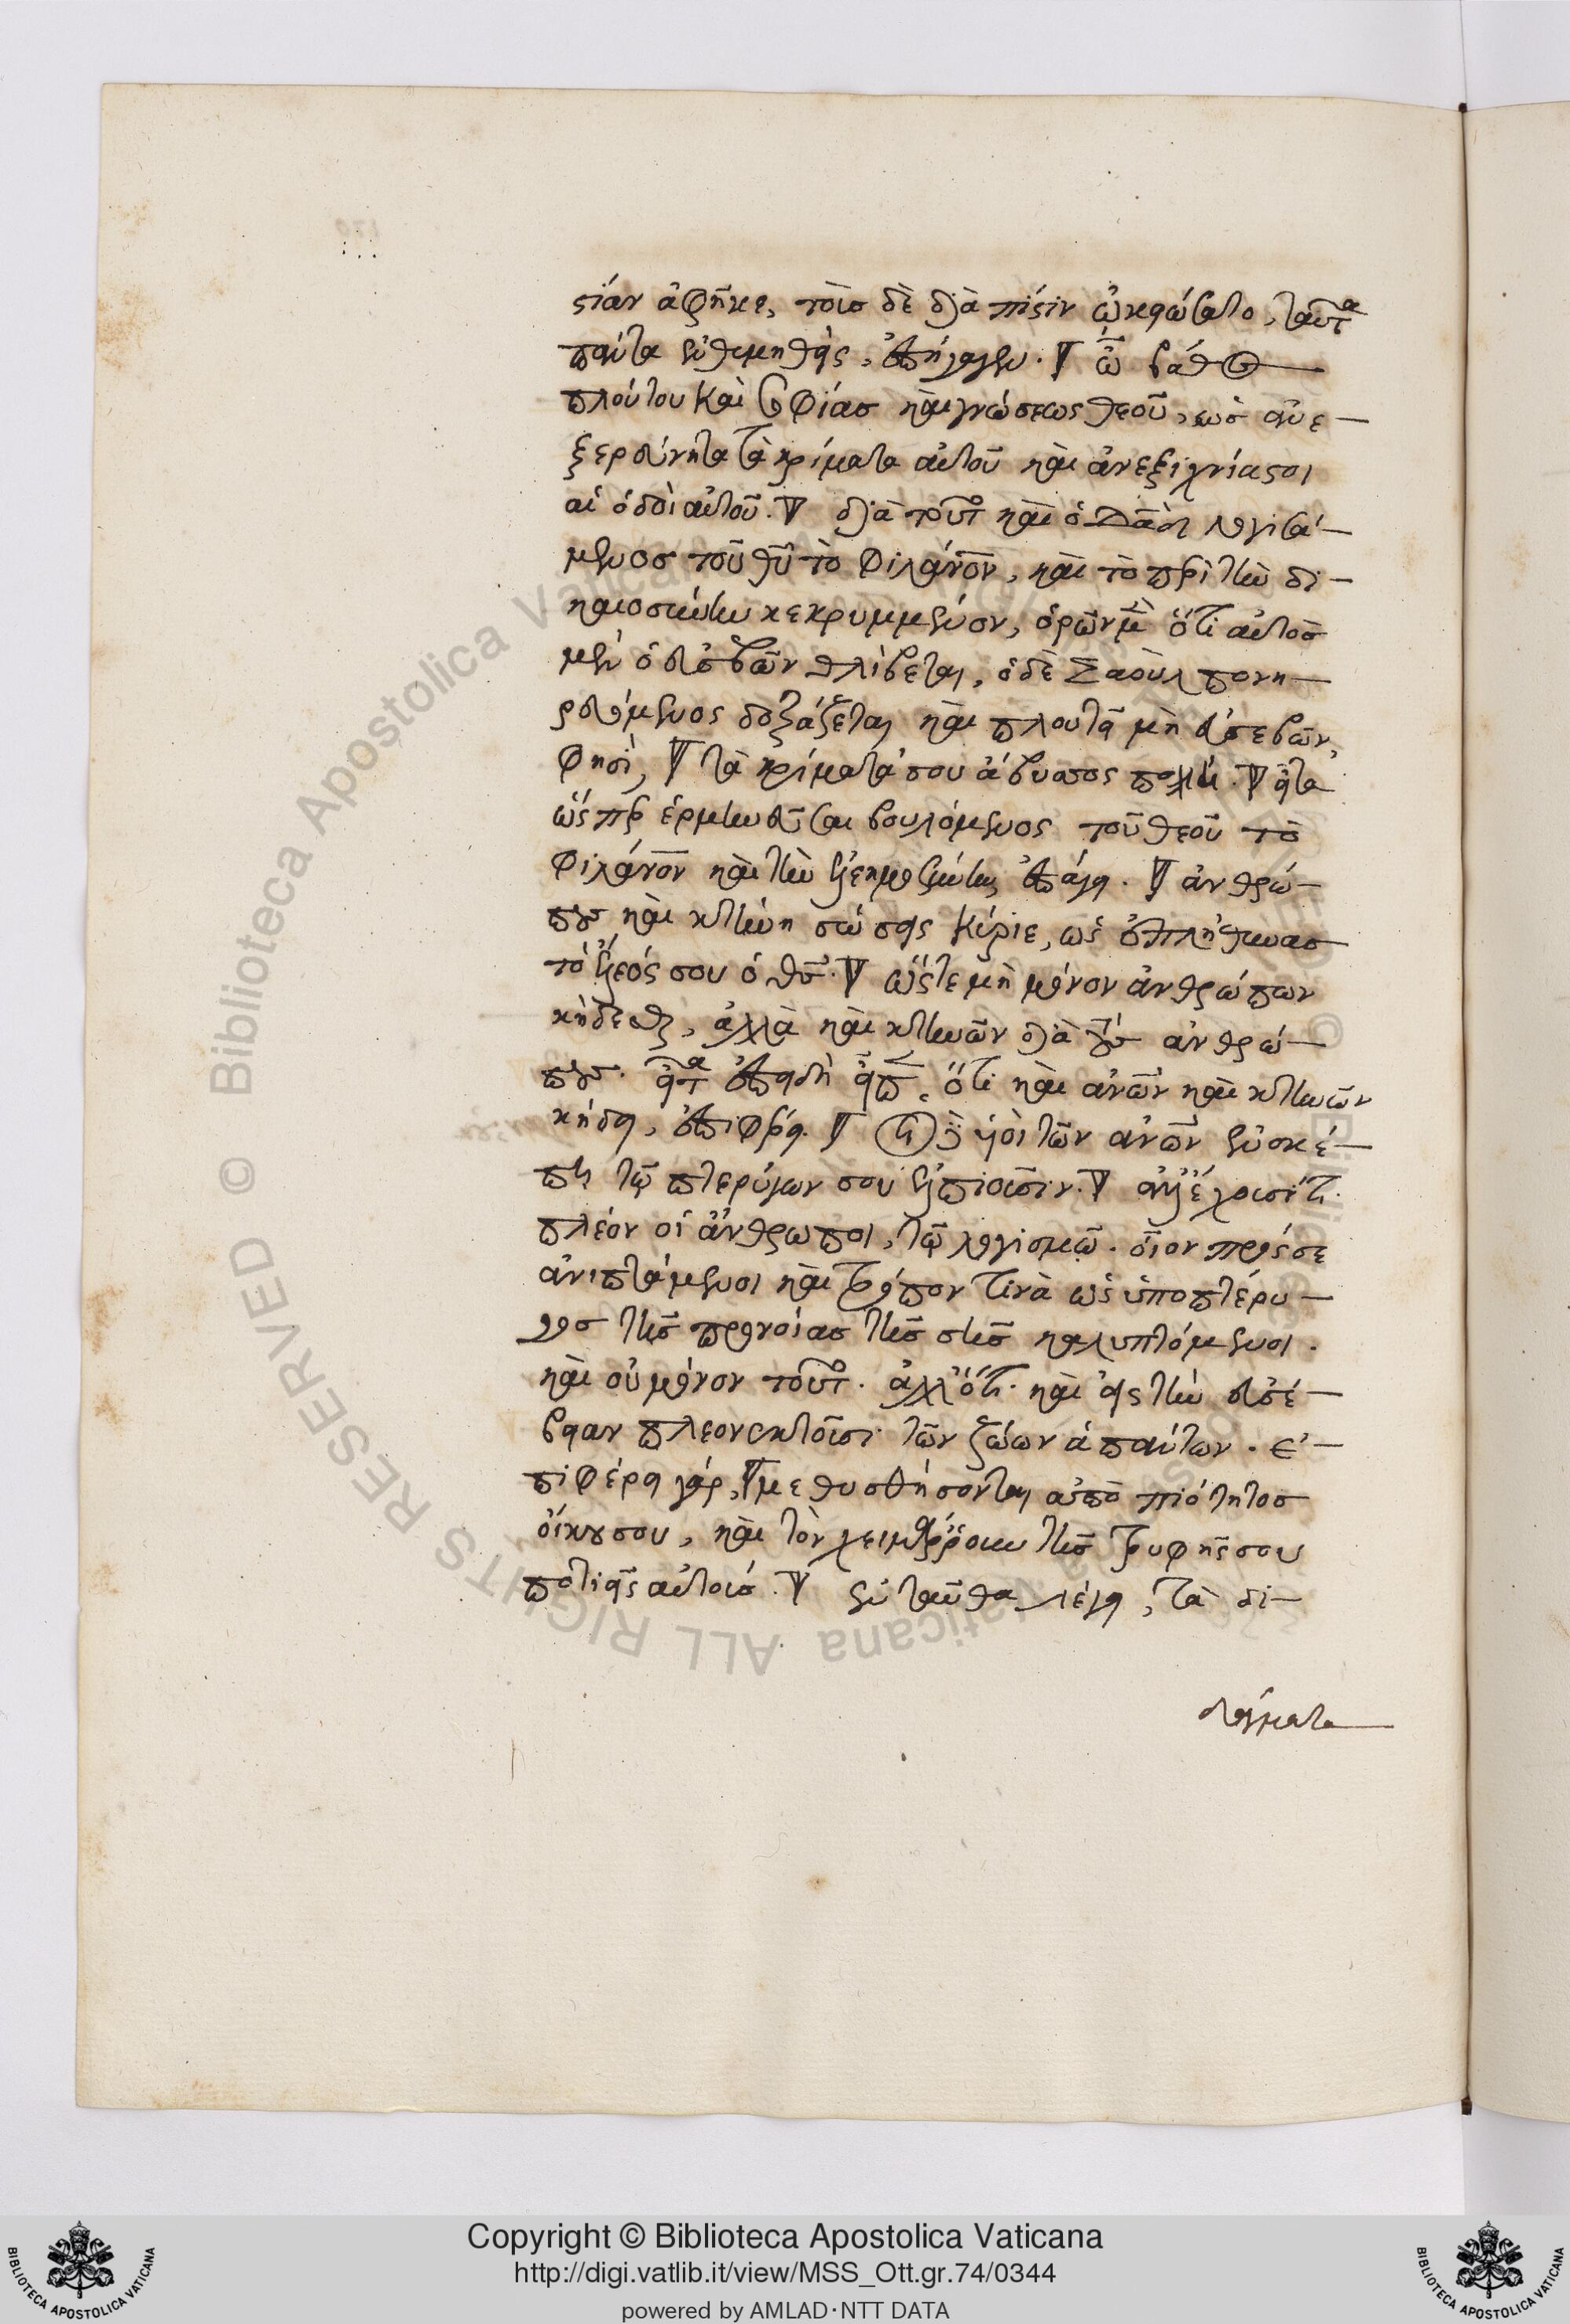 στίαν ἀφῆκε, τοῖς δὲ διὰ πίστιν ᾠκειώσατο, ταῦτα
πάντα ἐνθυμηθεὶς, ἐπήγαγεν. ὦ βάθος
πλούτου καὶ σοφίας καὶ γνώσεως θεοῦ, ὡς ἀνε-
ξερεύνητα τὰ κρίματα αὐτοῦ καὶ ἀνεξιχνίαστοι
αἱ ὁδοὶ αὐτοῦ. διὰ τοῦτο καὶ ὁ Δαδ λογισά-
μενος τοῦ θυ τὸ φιλάνον, καὶ τὸ περὶ τὴν δι-
καιοσύνην κεκρυμμένον, ὁρῶν μὲν ὅτι αὐτὸς
μὲν ὁ εὐσεβῶν θλίβεται, ὁ δὲ Σαοὺλ πονη-
ρευόμενος δοξάζεται καὶ πλουτεῖ μὴ εὐσεβῶν,
φησὶ, τὰ κρίματά σου ἄβυσσος πολλή. εἶτα
ὥσπερ ἑρμηνεῦσαι βουλόμενος τοῦ θεοῦ τὸ
φιλάνον καὶ τὴν ἐλεημοσύνην ἐπάγει. ἀνθρώ-
πους καὶ κτήνη σώσεις Κύριε, ὡς ἐπλήθυνας
τὸ ἔλεός σου ὁ θς. ὥστε μὴ μόνον ἀνθρώπων
κήδεσθαι, ἀλλὰ καὶ κτηνῶν διὰ τοὺς ἀνθρώ-
πους. εἶτα ἐπειδὴ εἶπεν, ὅτι καὶ ἀνων καὶ κτηνῶν
κήδει, ἐπιφέρει. οἱ δὲ υἱοὶ τῶν ἀνων ἐν σκέ-
πῃ τῶν πτερύγων σου ἐλπιοῦσιν. ἀλλ' ἔχουσί τι
πλέον οἱ ἄνθρωποι, τῷ λογισμῷ. οἷον πρός σε
ἀνιπτάμενοι καὶ τρόπον τινὰ ὡς ὑποπτέρυ-
γος τῆς προνοίας τῆς σῆς καλυπτόμενοι.
καὶ οὐ μόνον τοῦτο. ἀλλ' ὅτι καὶ εἰς τὴν εὐσέ-
βειαν πλεονεκτοῦσι τῶν ζώων ἁπάντων. ἐ-
πιφέρει γάρ, μεθυσθήσονται ἀπὸ πιότητος
οἴκου σου, καὶ τὸν χειμάρρουν τῆς τρυφῆς σου
ποτιεῖς αὐτούς. ἐνταῦθα λέγει, τὰ δι-
δάγματα
Copyright © Biblioteca Apostolica Vaticana
http://digi.vatlib.it/view/MSS_Ott.gr.74/0344
powered by AMLAD·NTT DATA
BIBLIOTECA APOSTOLICA VATICANA
BIBLIOTECA APOSTOLICA VATICANA